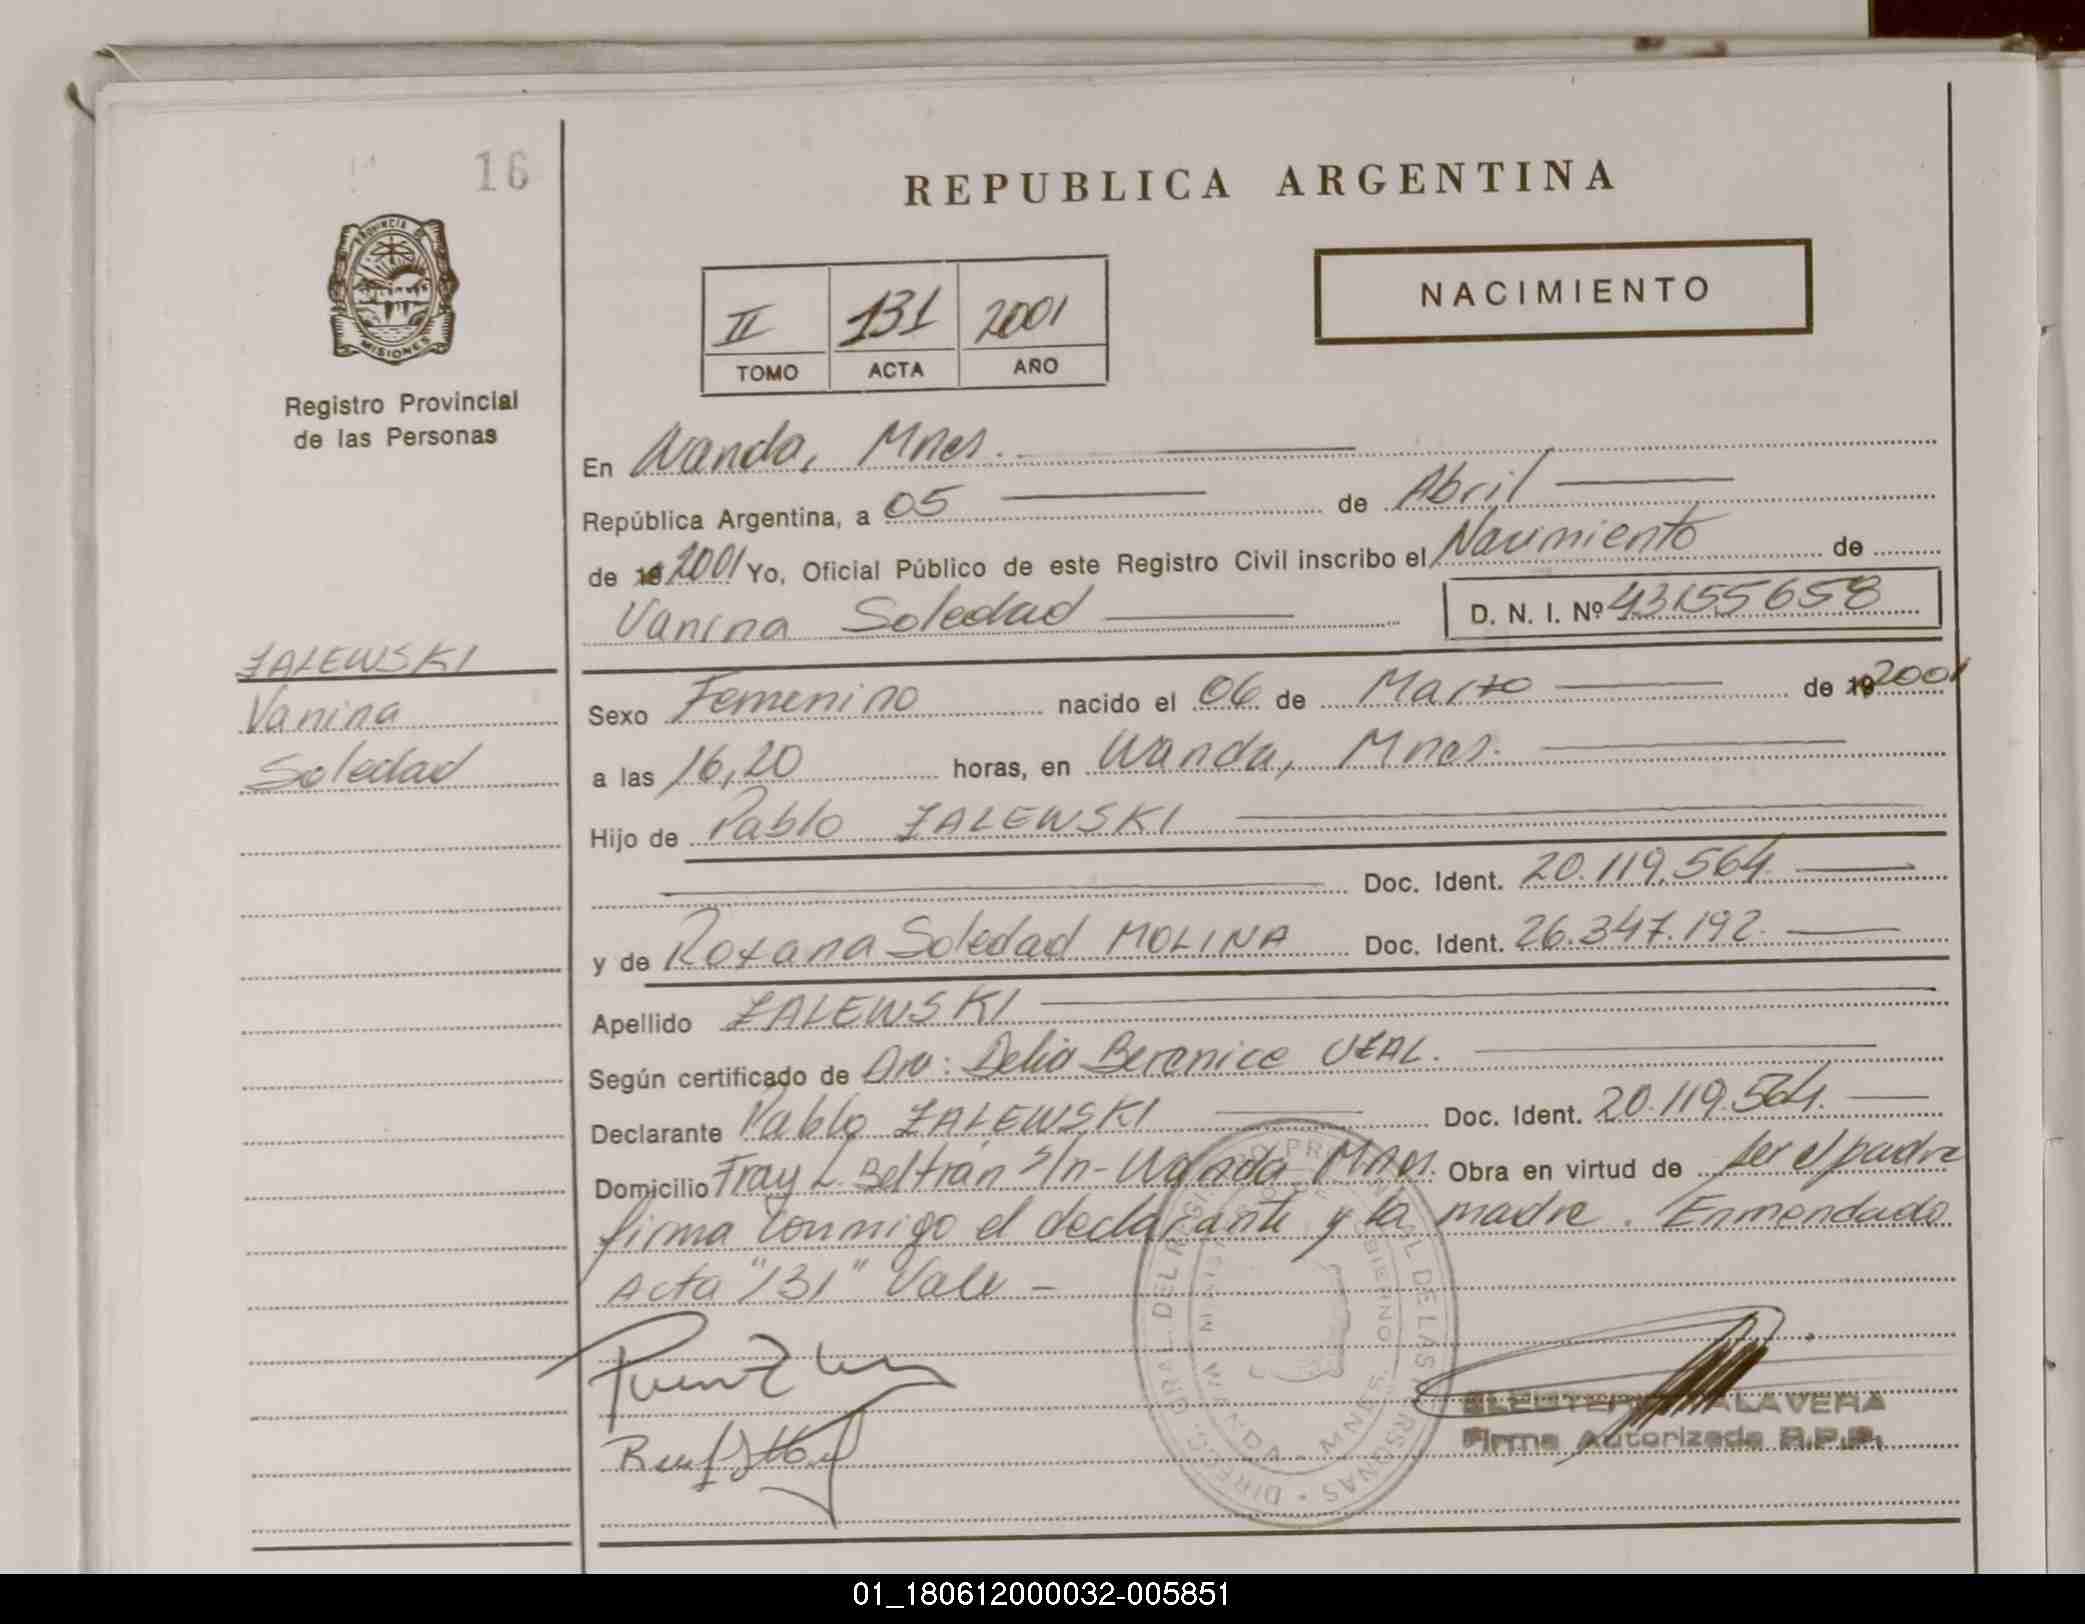 16
REPUBLICA ARGENTINA
PROVINCIA DE
MISIONES
Registro Provincial
de las Personas
II 131 2001
TOMO ACTA AÑO
NACIMIENTO
En Wanda, Mnes.
República Argentina, a 05 de Abril
de 19 2001 Yo, Oficial Público de este Registro Civil inscribo el Nacimiento de
Vanina Soledad D. N. I. Nº 43155658
ZALEWSKI
Vanina
Soledad
Sexo Femenino nacido el 06 de Marzo de 19 2001
a las 16,20 horas, en Wanda, Mnes.
Hijo de Pablo ZALEWSKI
Doc. Ident. 20.119.564.
y de Roxana Soledad MOLINA Doc. Ident. 26.347.192.
Apellido ZALEWSKI
Según certificado de Dra: Delia Berenice UZAL.
Declarante Pablo ZALEWSKI Doc. Ident. 20.119.564.
Domicilio Fray L. Beltrán s/n - Wanda Mnes. Obra en virtud de ser el padre
firma conmigo el declarante y la madre. Enmendado
Acta "131" Vale -
TALAVERA
Firma Autorizada R.P.P.
01_180612000032-005851